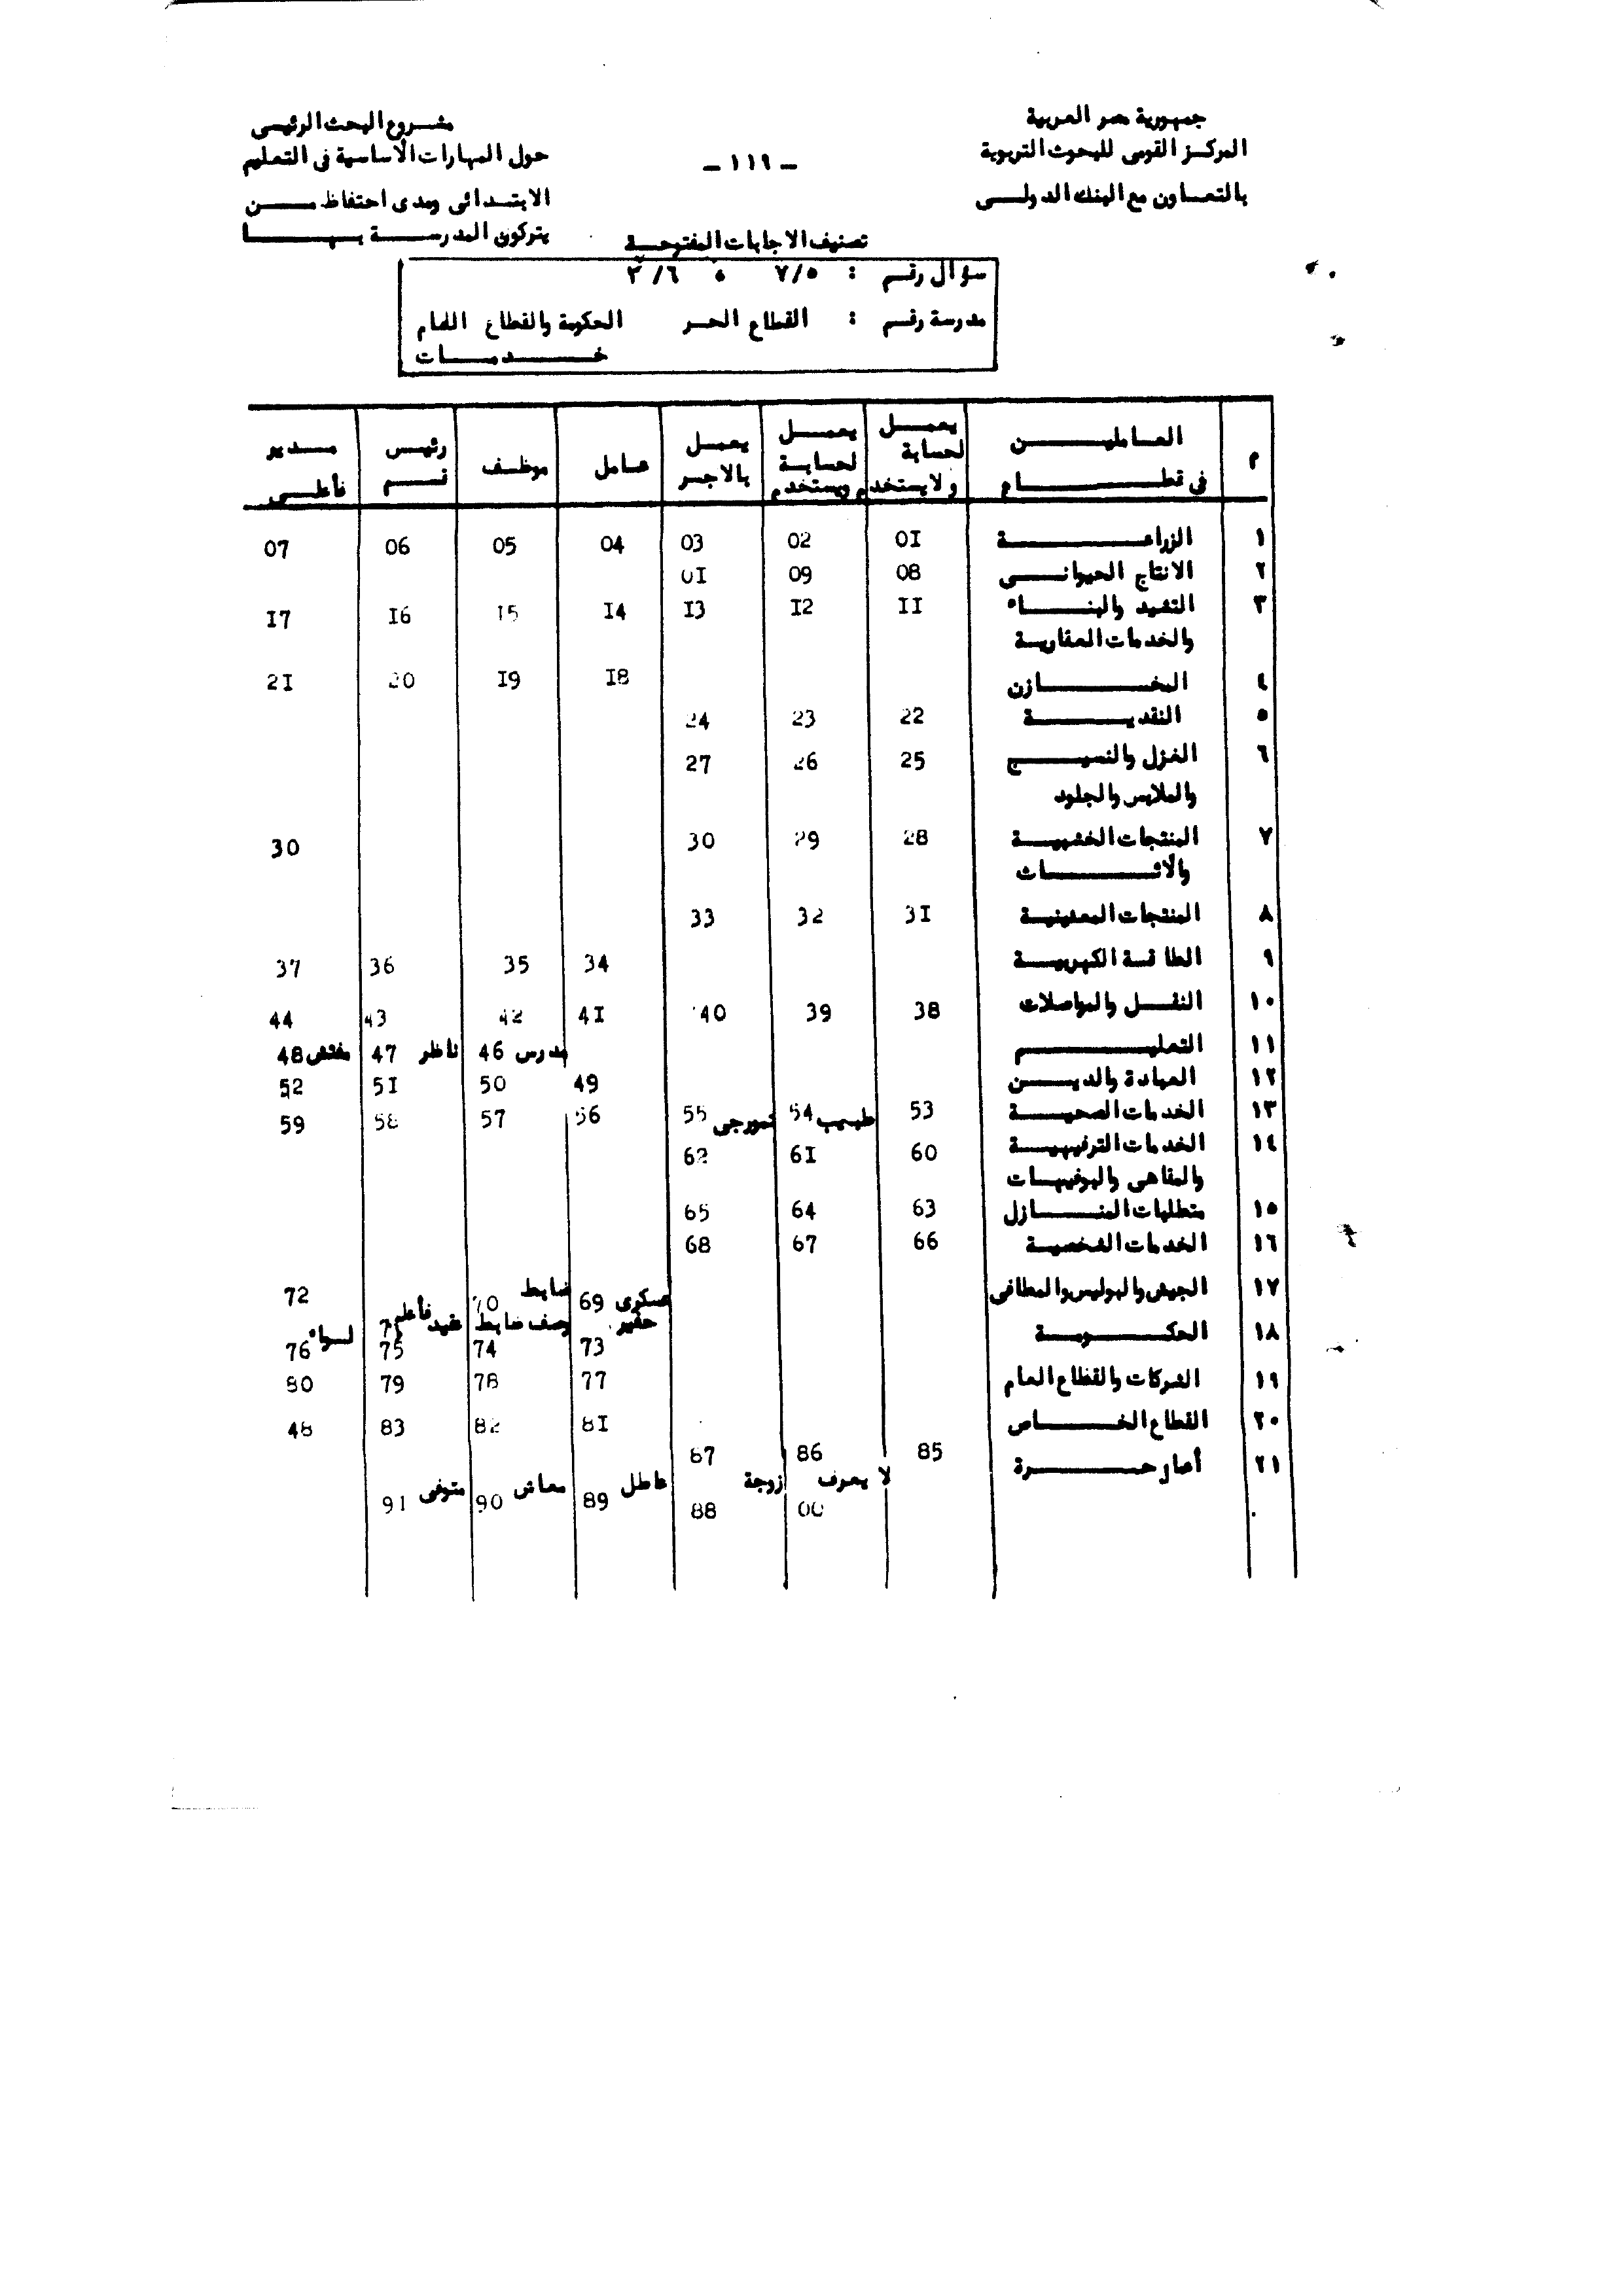 جمهورية مصر العربية
المركز القومى للبحوث التربوية
بالتعاون مع البنك الدولى
- ١١٩ -
مشروع البحث الرئيسى
حول المهارات الأساسية فى التعليم
الابتدائى ومدى احتفاظ من
يتركون المدرسة بها
تصنيف الاجابات المفتوحة
سؤال رقم : ٧/٥ ، ٣/٦
مدرسة رقم : القطاع الحر الحكومة والقطاع العام
خدمات
م العاملين فى قطاع يعمل لحسابة ولا يستخدم يعمل لحسابة ويستخدم يعمل بالاجر عامل موظف رئيس قسم مدير فأعلى
١ الزراعة 01 02 03 04 05 06 07
٢ الانتاج الحيوانى 08 09 01
٣ التشيد والبناء 11 12 13 14 15 16 17
والخدمات العقارية
٤ المخازن 18 19 20 21
٥ النقدية 22 23 24
٦ الغزل والنسيج 25 26 27
والملابس والجلود
٧ المنتجات الخشبية 28 29 30 30
والأثاث
٨ المنتجات المعدنية 31 32 33
٩ الطاقة الكهربية 34 35 36 37
١٠ النقل والمواصلات 38 39 40 41 42 43 44
١١ التعليم مدرس 46 ناظر 47 مفتش 48
١٢ العبادة والدين 49 50 51 52
١٣ الخدمات الصحية 53 طبيب 54 تمورجى 55 56 57 58 59
١٤ الخدمات الترفيهية 60 61 62
والمقاهى والبوفيهات
١٥ متطلبات المنازل 63 64 65
١٦ الخدمات الشخصية 66 67 68
١٧ الجيش والبوليس والمطافى عسكرى 69 خفير ضابط 70 وصف ضابط عقيد فأعلى 71 72 لواء
١٨ الحكومة 73 74 75 76
١٩ الشركات والقطاع العام 77 78 79 80
٢٠ القطاع الخاص 81 82 83 48
٢١ أعمار حرة 85 86 87
لا يعرف 00 زوجة 88 عاطل 89 معاش 90 متوفى 91